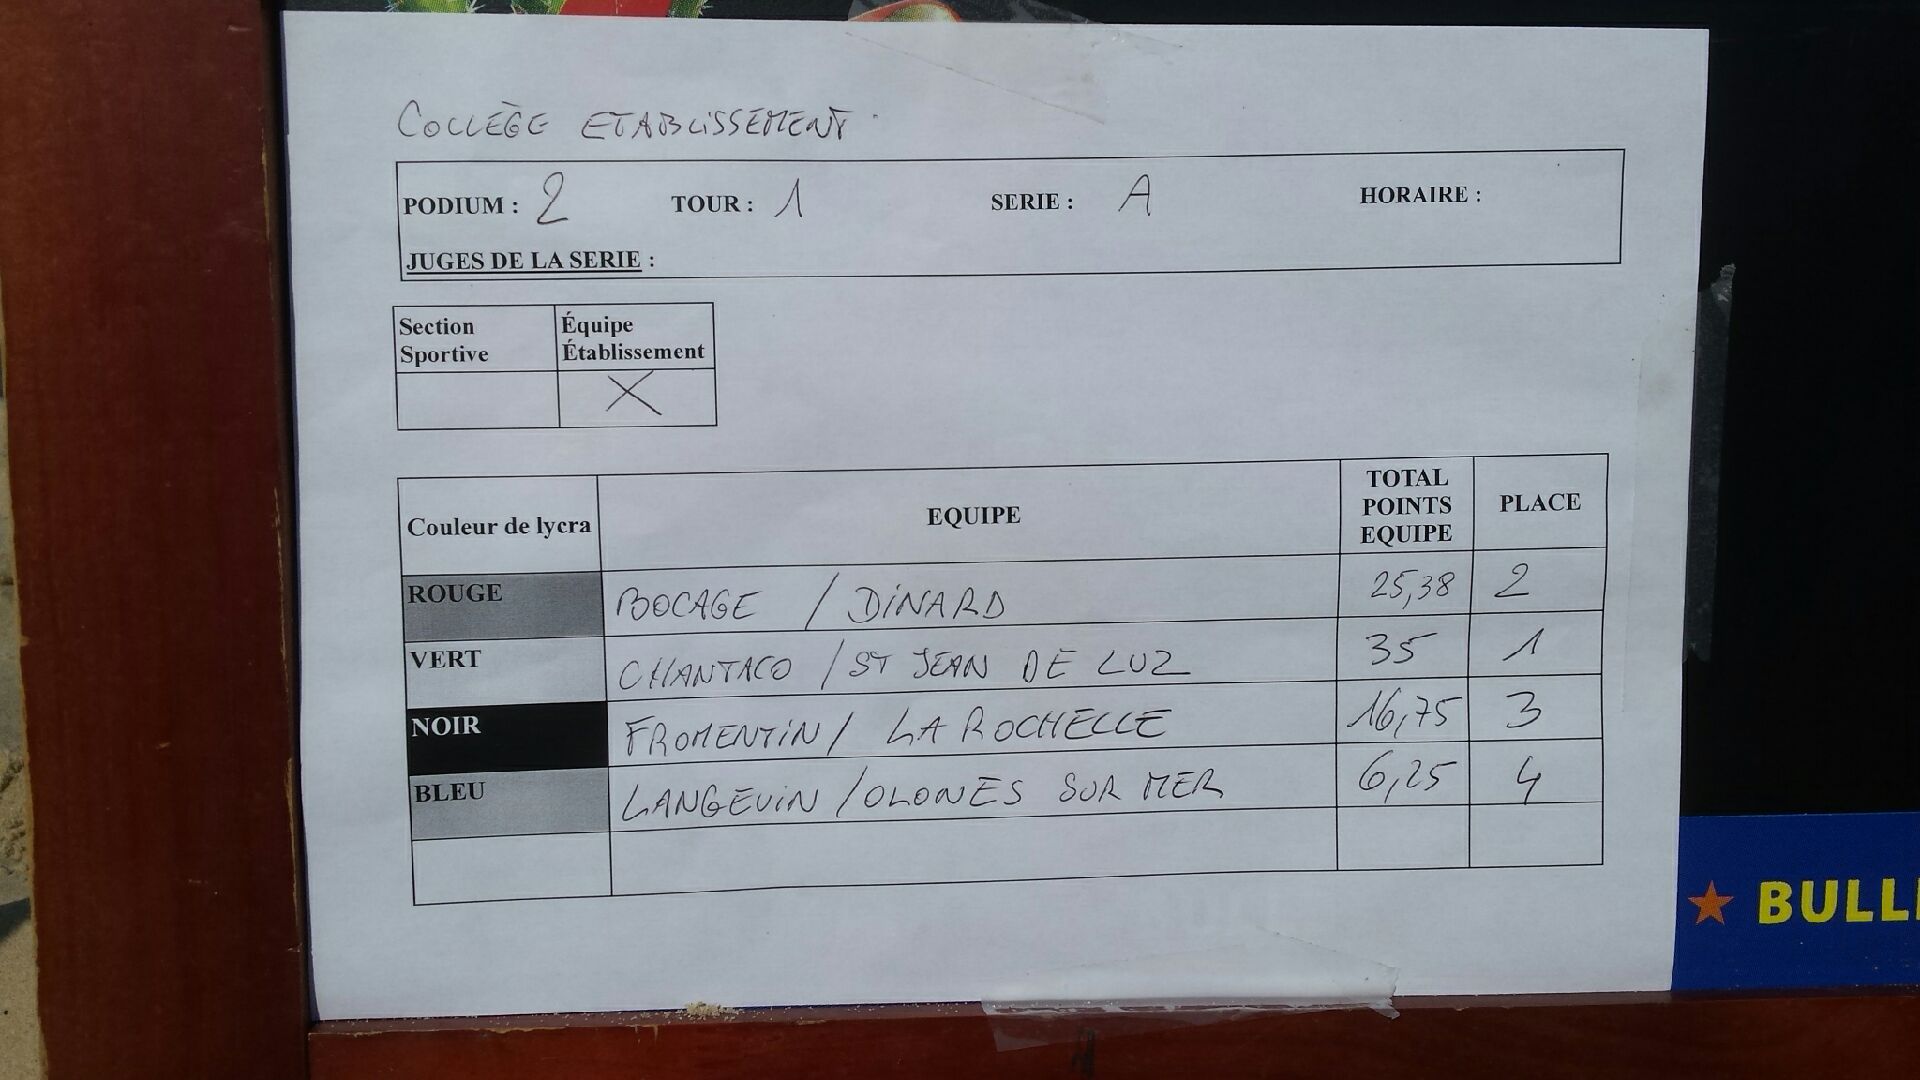 COLLÈGE ETABLISSEMENT.
PODIUM : 2 TOUR : 1 SERIE : A HORAIRE :
JUGES DE LA SERIE :
Section Sportive
Équipe Établissement
X
Couleur de lycra EQUIPE TOTAL POINTS EQUIPE PLACE
ROUGE BOCAGE / DINARD 25,38 2
VERT CHANTACO / ST JEAN DE LUZ 35 1
NOIR FROMENTIN / LA ROCHELLE 16,75 3
BLEU LANGEVIN / OLONES SUR MER 6,25 4
BULL